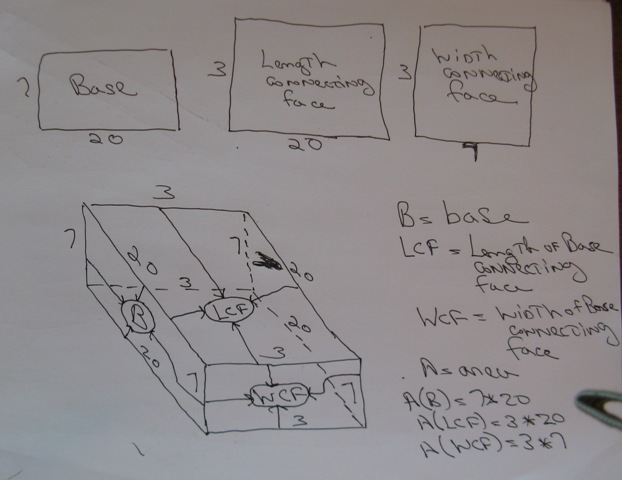 7
Base
20
3
Length
connecting
face
20
3
Width
connecting
face
7
3
7
20
7
20
3
B
LCF
20
20
3
7
WCF
7
3
B = base
LCF = Length of Base
connecting
face
WCF = Width of Base
connecting
face
A = area
A(B) = 7*20
A(LCF) = 3*20
A(WCF) = 3*7